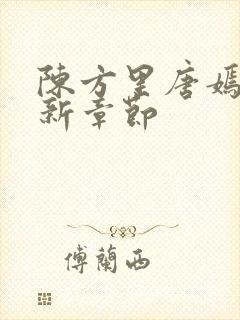 陳方里唐嫣
新章節
傅蘭西